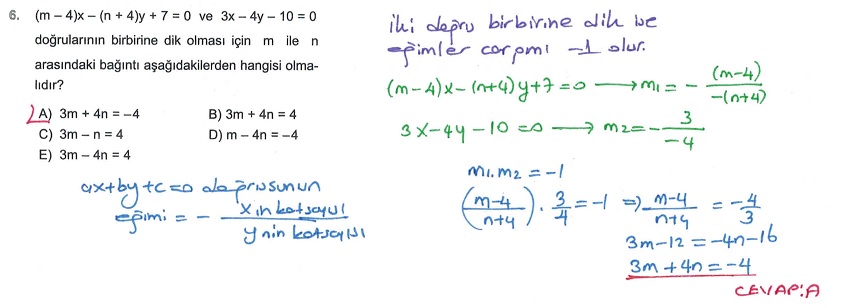 6. (m – 4)x – (n + 4)y + 7 = 0 ve 3x – 4y – 10 = 0
doğrularının birbirine dik olması için m ile n
arasındaki bağıntı aşağıdakilerden hangisi olma-
lıdır?
A) 3m + 4n = –4 B) 3m + 4n = 4
C) 3m – n = 4 D) m – 4n = –4
E) 3m – 4n = 4
ax+by+c=0 doğrusunun
eğimi = - x in katsayısı / y nin katsayısı
iki doğru birbirine dik ise
eğimler çarpımı -1 olur.
(m-4)x-(n+4)y+7=0 → m1 = - (m-4)/-(n+4)
3x-4y-10=0 → m2 = - 3/-4
m1.m2 = -1
(m-4/n+4) . 3/4 = -1 ⇒ m-4/n+4 = -4/3
3m-12 = -4n-16
3m+4n = -4
CEVAP:A